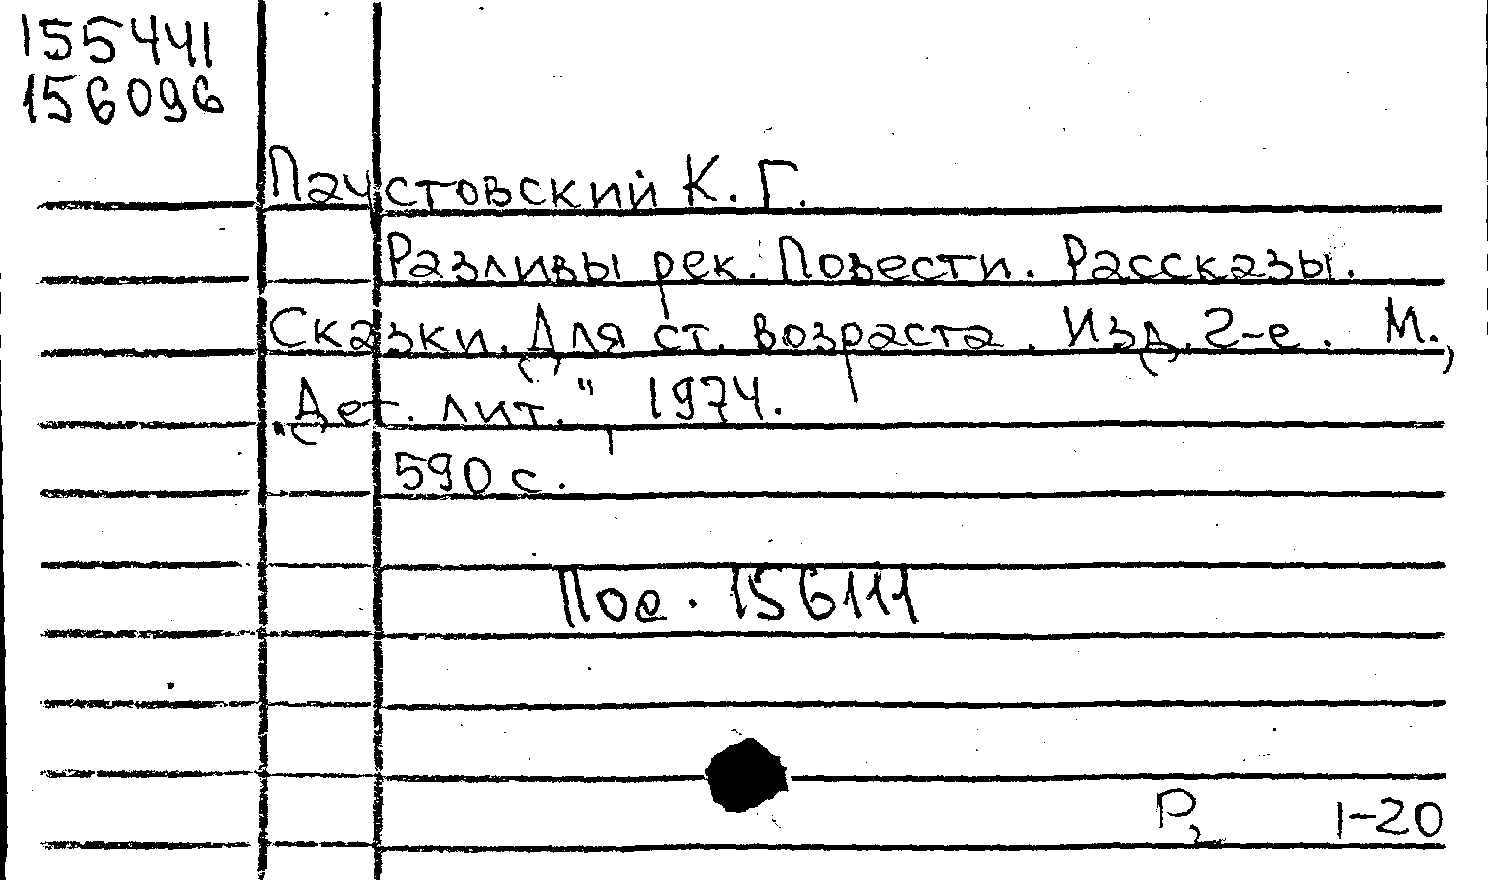 155441
156096
Паустовский К. Г.
Разливы рек. Повести. Рассказы.
Сказки. Для ст. возраста. Изд. 2-е. М.,
"Дет. лит.", 1974.
590 с.
156111
P2 1-20